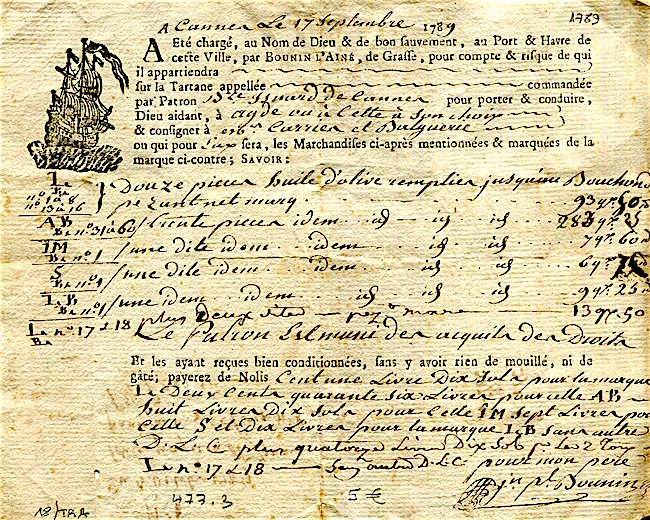 A Cannes Le 17 Septembre 1789
1789
A Eté chargé, au Nom de Dieu & de bon sauvement, au Port & Havre de
cette Ville, par BOUNIN L'AINÉ, de Grasse, pour compte & risque de qui
il appartiendra
sur la Tartane appellée commandée
par Patron de Cannes pour porter & conduire,
Dieu aidant, à agde ou à Cette à son choix
& consigner à Carrier et
ou qui pour Eux sera, les Marchandises ci-après mentionnées & marquées de la
marque ci-contre; SAVOIR:
n° 1 à 8 Douze pieces huile d'olive remplies jusqu'au Bouchons
n° 13 à 16 pezant net marq 93 qx. 50
AB n° 31 à 60 / trente pieces idem id id 283 qx. 25
IM n° 1 / une dite idem idem id id 7 qx. 60
S n° 1 / une dite idem idem id id 6 qx.
I.B n° 1 / une idem idem id id 9 qx. 25
n° 17 & 18 plus Deux 13 qx. 50
Le Patron est muni des acquits des Droits
Et les ayant reçues bien conditionnées, sans y avoir rien de mouillé, ni de
gâté; payerez de Nolis Cent une Livre Dix Sols pour la marque
Deux Cents quarante Six Livres pour celle AB
huit Livres Dix Sols pour Celle IM Sept Livres pour
Celle S et Dix Livres pour la marque I.B Sans autre
D. L. C plus quatorze Livres Dix Sols les 2
n° 17 & 18 Sans autre D.L.C pour mon pere
Bounin
477.3
5 €
18/TRA